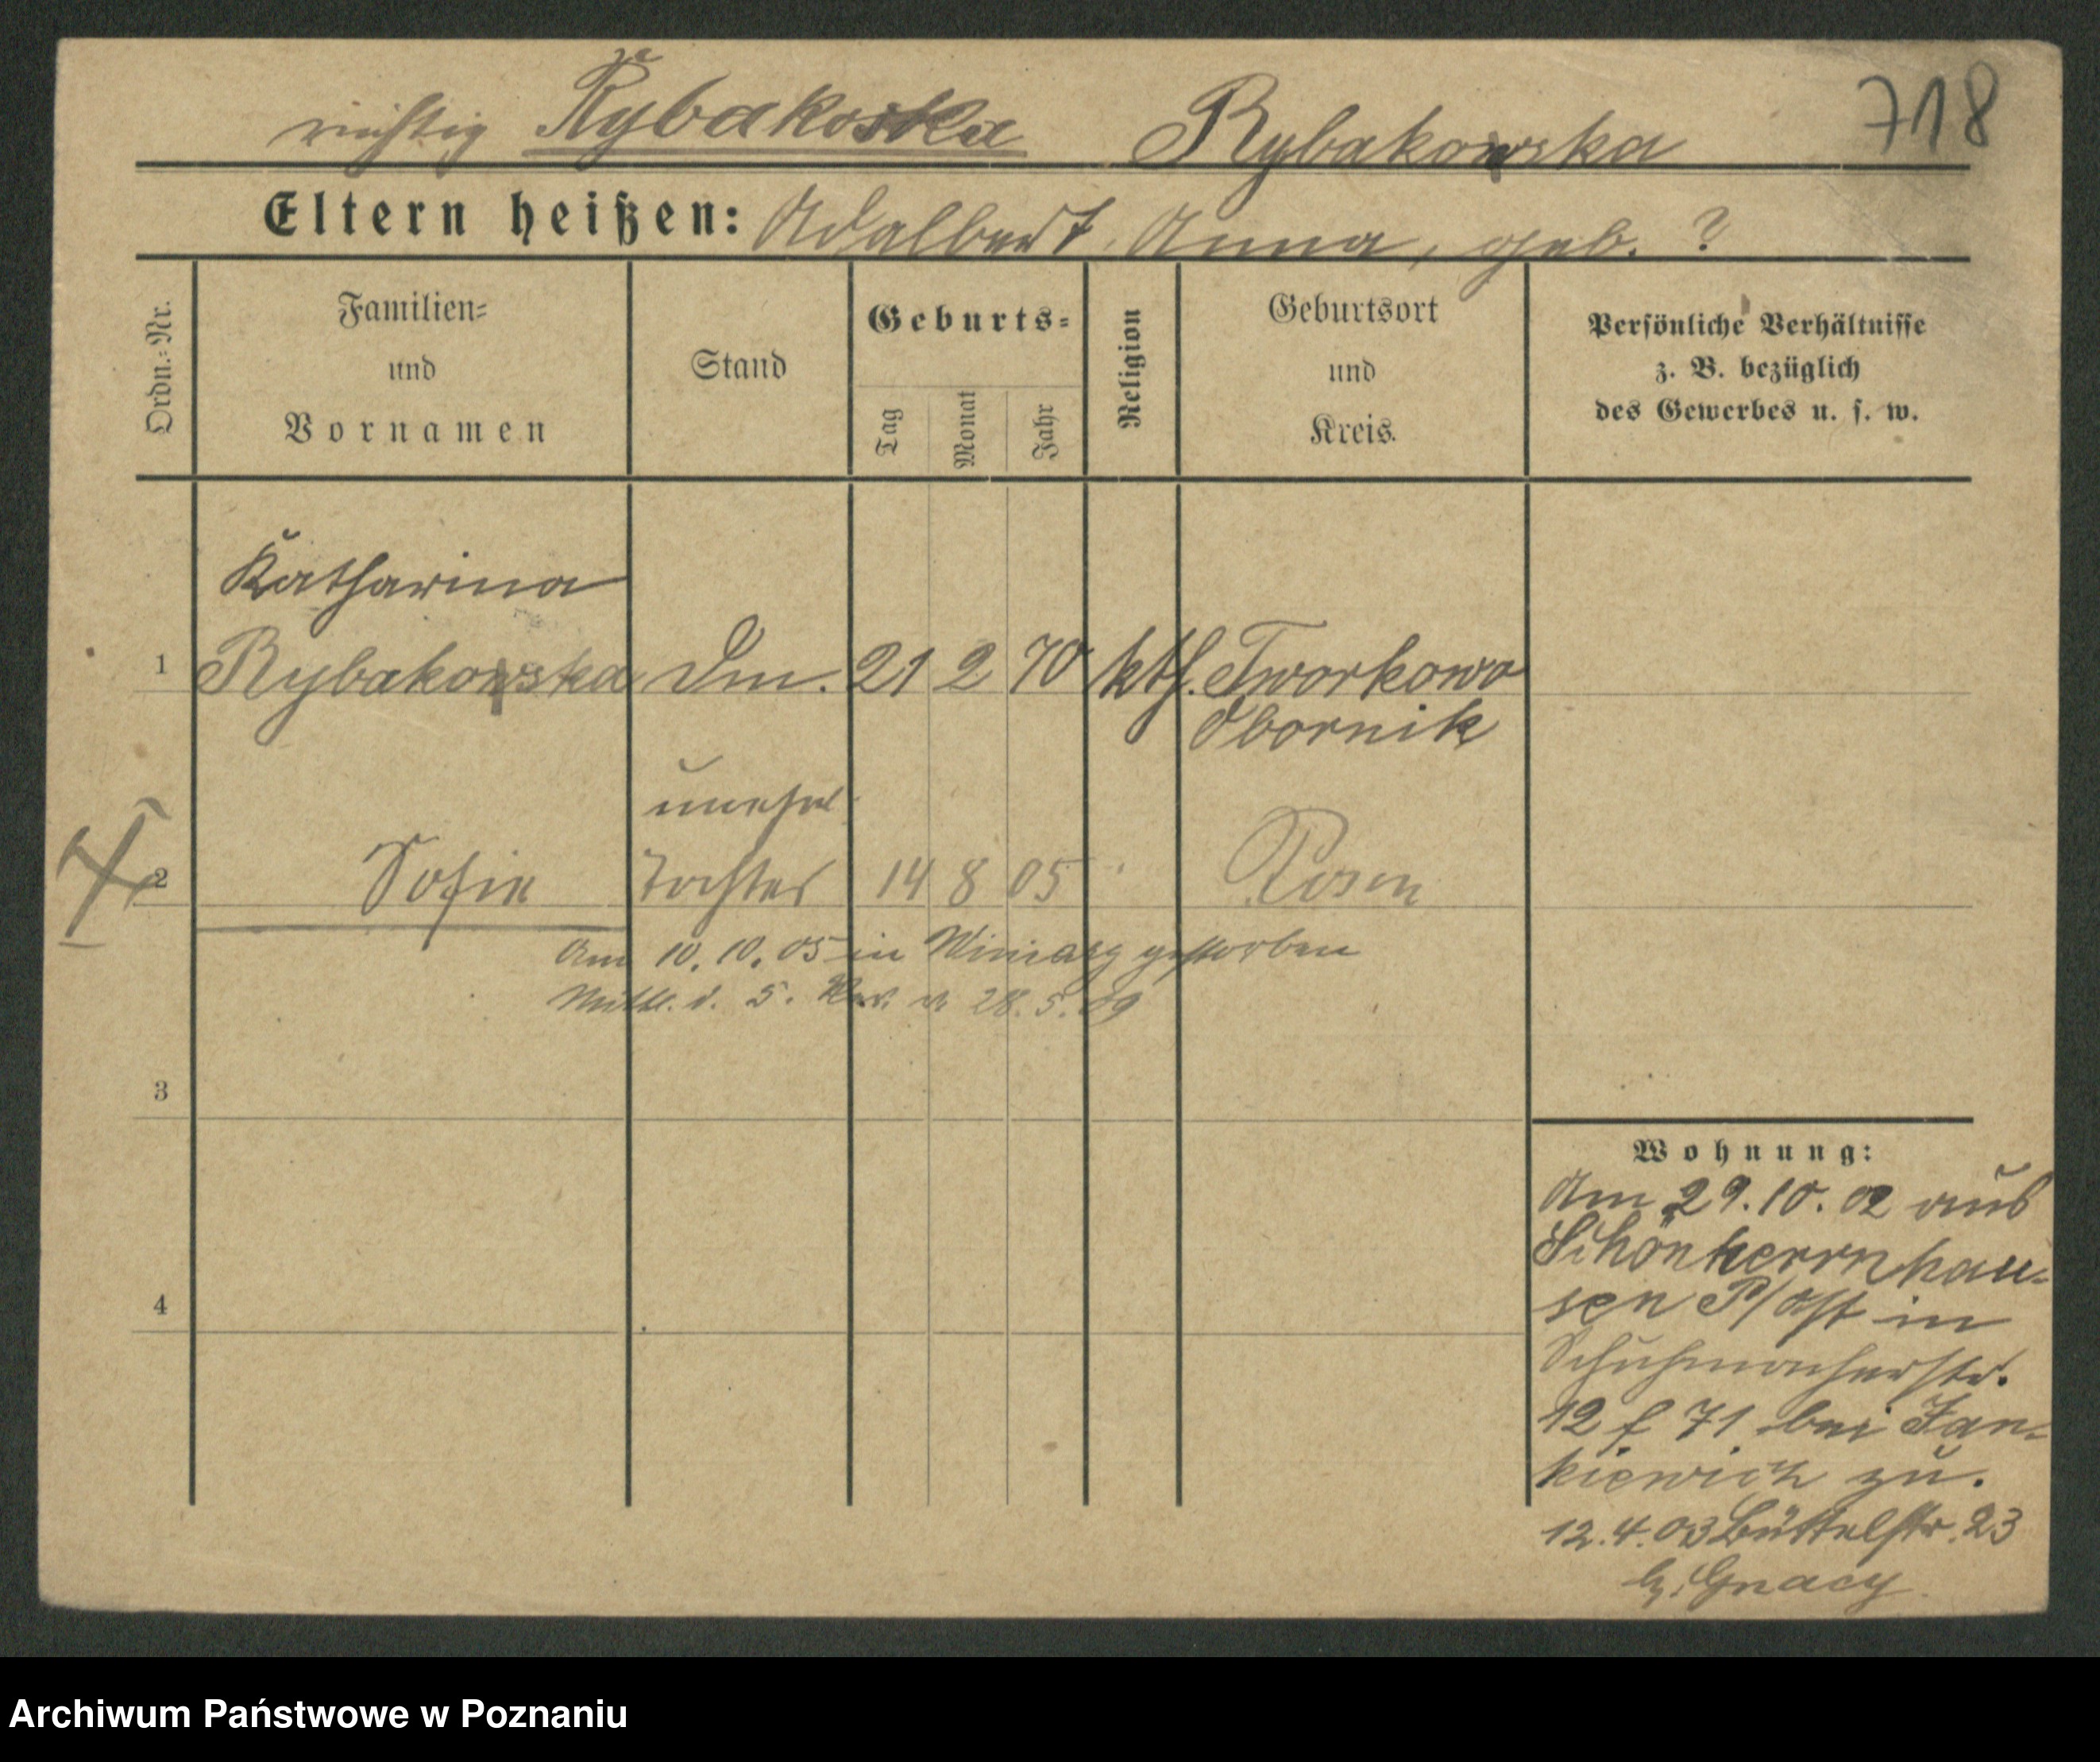 richtig Rybakoska Rybakowska 718
Eltern heißen: Adalbert, Anna, geb. ?
Ordn.=Nr.
Familien=
und
Vornamen
Stand
Geburts=
Tag
Monat
Jahr
Religion
Geburtsort
und
Kreis.
Persönliche Verhältnisse
z. B. bezüglich
des Gewerbes u. s. w.
Katharina
1 Rybakowska Dm. 21 2 70 kth. Tworkowo
Obornik
unehel.
2 Sofie Tochter 14 8 05 Posen
Am 10. 10. 05 in Winiary gestorben
Mittl. d. 5. Rev. v. 28. 5. 09
3
4
Wohnung:
Am 29.10.02 aus
Schönherrnhau-
sen P/Ost in
Schuhmacherstr.
12 f 71 bei Jan-
kiewicz zu.
12.4.03 Büttelstr. 23
b. Gnacy
Archiwum Państwowe w Poznaniu